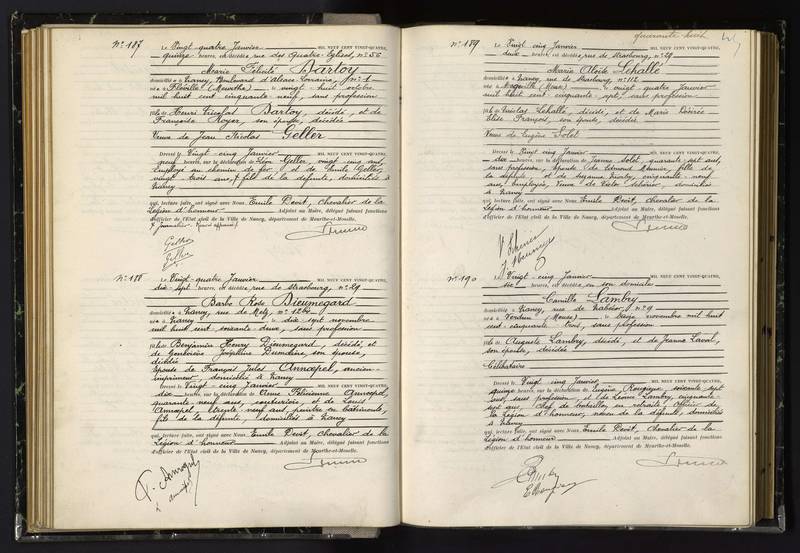 N° 187 Le Vingt quatre Janvier MIL NEUF CENT VINGT-QUATRE,
quinze heures, est décédée, rue des Quatre Eglises, n° 56
Marie Félicité Bartoy
domiciliée à Nancy, Boulevard d'Alsace-Lorraine, n° 1
née à Fléville (Meurthe) le vingt-huit octobre
mil huit cent cinquante-neuf, sans profession
fille de Henri Nicolas Bartoy, décédé, et de
Françoise Noyer, son épouse, décédée
Veuve de Jean Nicolas Geller
Dressé le Vingt cinq Janvier MIL NEUF CENT VINGT-QUATRE,
neuf heures, sur la déclaration de Léon Geller, vingt cinq ans,
employé au chemin de fer, et de Emile Geller,
vingt trois ans, fils de la défunte, domiciliés à
Nancy
qui, lecture faite, ont signé avec Nous Emile Devit, Chevalier de la
Légion d'honneur Adjoint au Maire, délégué faisant fonctions
d'officier de l'Etat civil de la Ville de Nancy, département de Meurthe-et-Moselle.
Geller
Geller
N° 188 Le Vingt-quatre Janvier MIL NEUF CENT VINGT-QUATRE,
dix-sept heures, est décédée, rue de Strasbourg, n° 29
Barbe Rose Dieumegard
domiciliée à Nancy, rue de Metz, n° 12
née à Nancy le dix sept novembre
mil huit cent soixante deux, sans profession
fille de Benjamin Henry Dieumegard, décédé, et
de Geneviève Joséphine son épouse,
décédée
Epouse de François Jules Annoepel, ancien
imprimeur, domicilié à Nancy
Dressé le Vingt cinq Janvier MIL NEUF CENT VINGT-QUATRE,
dix heures, sur la déclaration de Félicienne Annoepel,
quarante-neuf ans, couturière, et de Louis
Annoepel, trente neuf ans, peintre en bâtiments,
fils de la défunte, domiciliés à Nancy
qui, lecture faite, ont signé avec Nous Emile Devit, Chevalier de la
Légion d'honneur Adjoint au Maire, délégué faisant fonctions
d'officier de l'Etat civil de la Ville de Nancy, département de Meurthe-et-Moselle.
quarante-huit
N° 189 Le Vingt cinq Janvier MIL NEUF CENT VINGT-QUATRE,
deux heures, est décédée, rue de Strasbourg, n° 29
Marie Aloïse Lehallé
domiciliée à Nancy, rue de Strasbourg, n° 112
née à (Meuse) le vingt quatre Janvier
mil huit cent cinquante-sept, sans profession
fille de Nicolas Lehallé, décédé, et de Marie Désirée
Elise François, son épouse, décédée
Veuve de Eugène Solet
Dressé le Vingt cinq Janvier MIL NEUF CENT VINGT-QUATRE,
dix heures, sur la déclaration de Jeanne Solet, quarante sept ans,
sans profession, épouse de Edmond Meunier, fille de
la défunte, et de cinquante-neuf
ans, employée, Veuve de Victor domiciliées
à Nancy
qui, lecture faite, ont signé avec Nous Emile Devit, Chevalier de la
Légion d'honneur Adjoint au Maire, délégué faisant fonctions
d'officier de l'Etat civil de la Ville de Nancy, département de Meurthe-et-Moselle.
N° 190 Le Vingt cinq Janvier MIL NEUF CENT VINGT-QUATRE,
six heures, est décédée en son domicile
Camille Lambry
domiciliée à Nancy, rue de n° 9
née à Verdun (Meuse) le treize novembre mil huit
cent cinquante trois, sans profession
fille de Auguste Lambry, décédé, et de Jeanne Laval,
son épouse, décédée
Célibataire
Dressé le Vingt cinq Janvier MIL NEUF CENT VINGT-QUATRE,
quinze heures, sur la déclaration de Eugénie soixante sept
ans, sans profession, et de Léonce Lambry, cinquante-
sept ans, Chef de bataillon en retraite, Officier de
la Légion d'honneur, de la défunte, domiciliés
à Nancy
qui, lecture faite, ont signé avec Nous Emile Devit, Chevalier de la
Légion d'honneur Adjoint au Maire, délégué faisant fonctions
d'officier de l'Etat civil de la Ville de Nancy, département de Meurthe-et-Moselle.